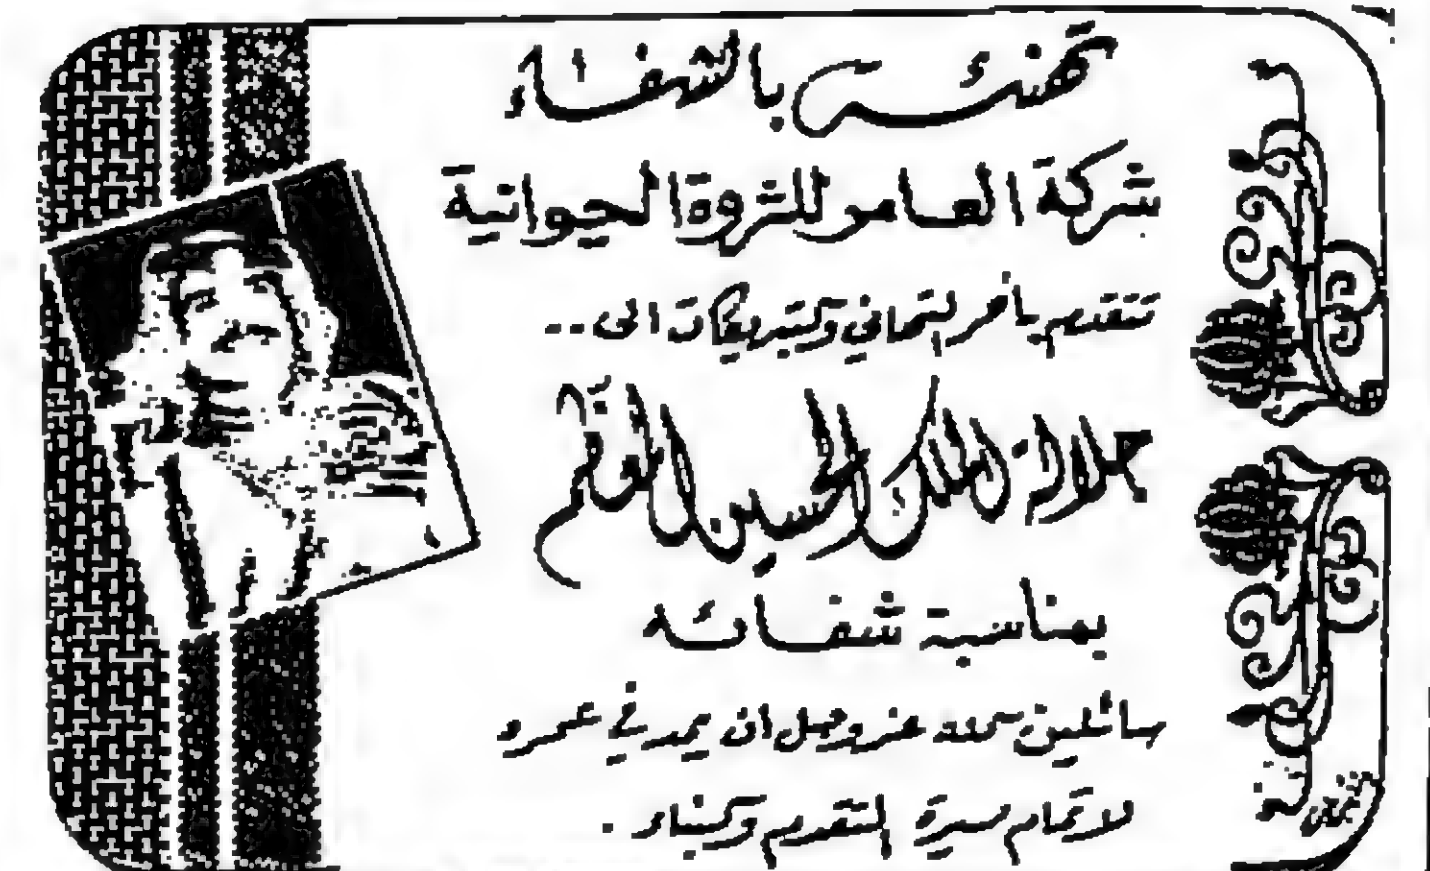 تهنئة بالشفاء
شركة العامر للثروة الحيوانية
تتقدم بأحر التهاني والتبريكات الى..
جلالة الملك الحسين المعظم
بمناسبة شفائه
سائلين الله عز وجل ان يمد في عمره
لاتمام مسيرة التقدم والبناء.